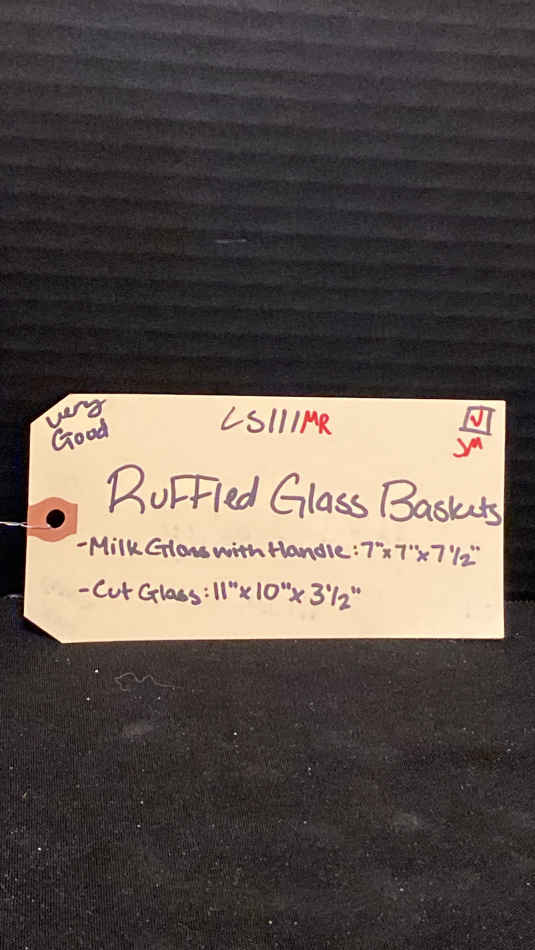 very
Good
LS111MR
✓
JM
Ruffled Glass Baskets
-Milk Glass with Handle: 7"x7"x7 1/2"
-Cut Glass: 11"x10"x3 1/2"